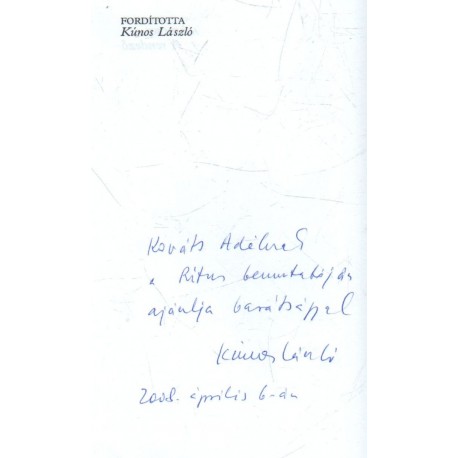 FORDÍTOTTA
Kúnos László
Kováts Adélnak
a Ritus bemutatóján
ajánlja barátsággal
Kúnos László
2008. április 6-án